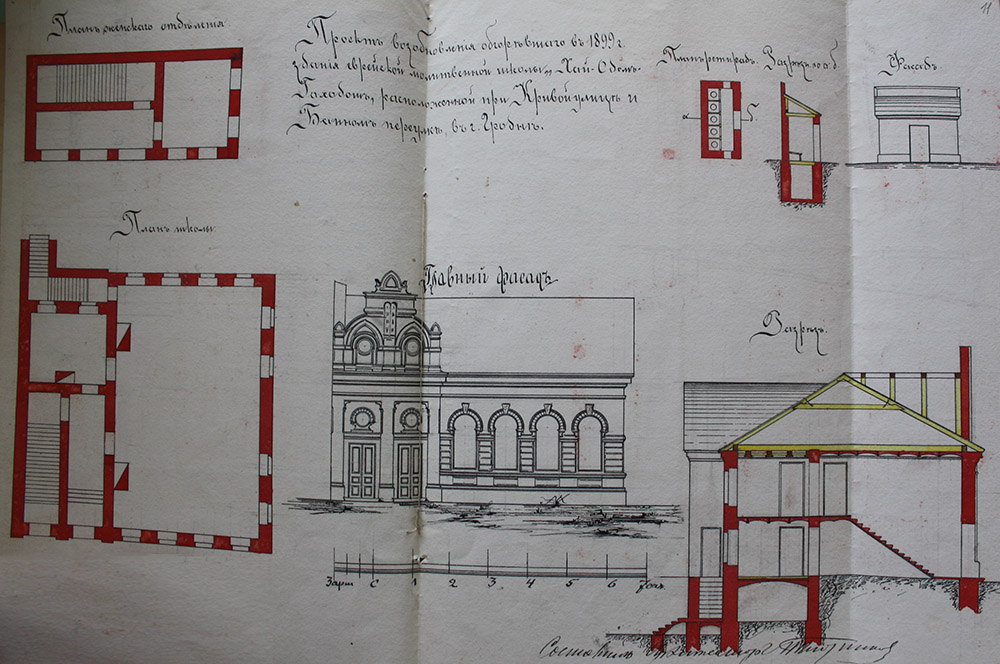 11
Планъ женскаго отдѣленія
Проектъ возобновленія обгорѣвшаго въ 1899 г.
зданія еврейской молитвенной школы „Хай-Одамъ“
расположенной при Кривой улицѣ и
Банномъ переулкѣ, въ г. Гродно.
Планъ ретирадъ.
Разрѣзъ по а.б.
Фасадъ.
а
б
Планъ школы
Главный фасадъ
Разрѣзъ.
0 1 2 3 4 5 6 7 саж.
Составилъ